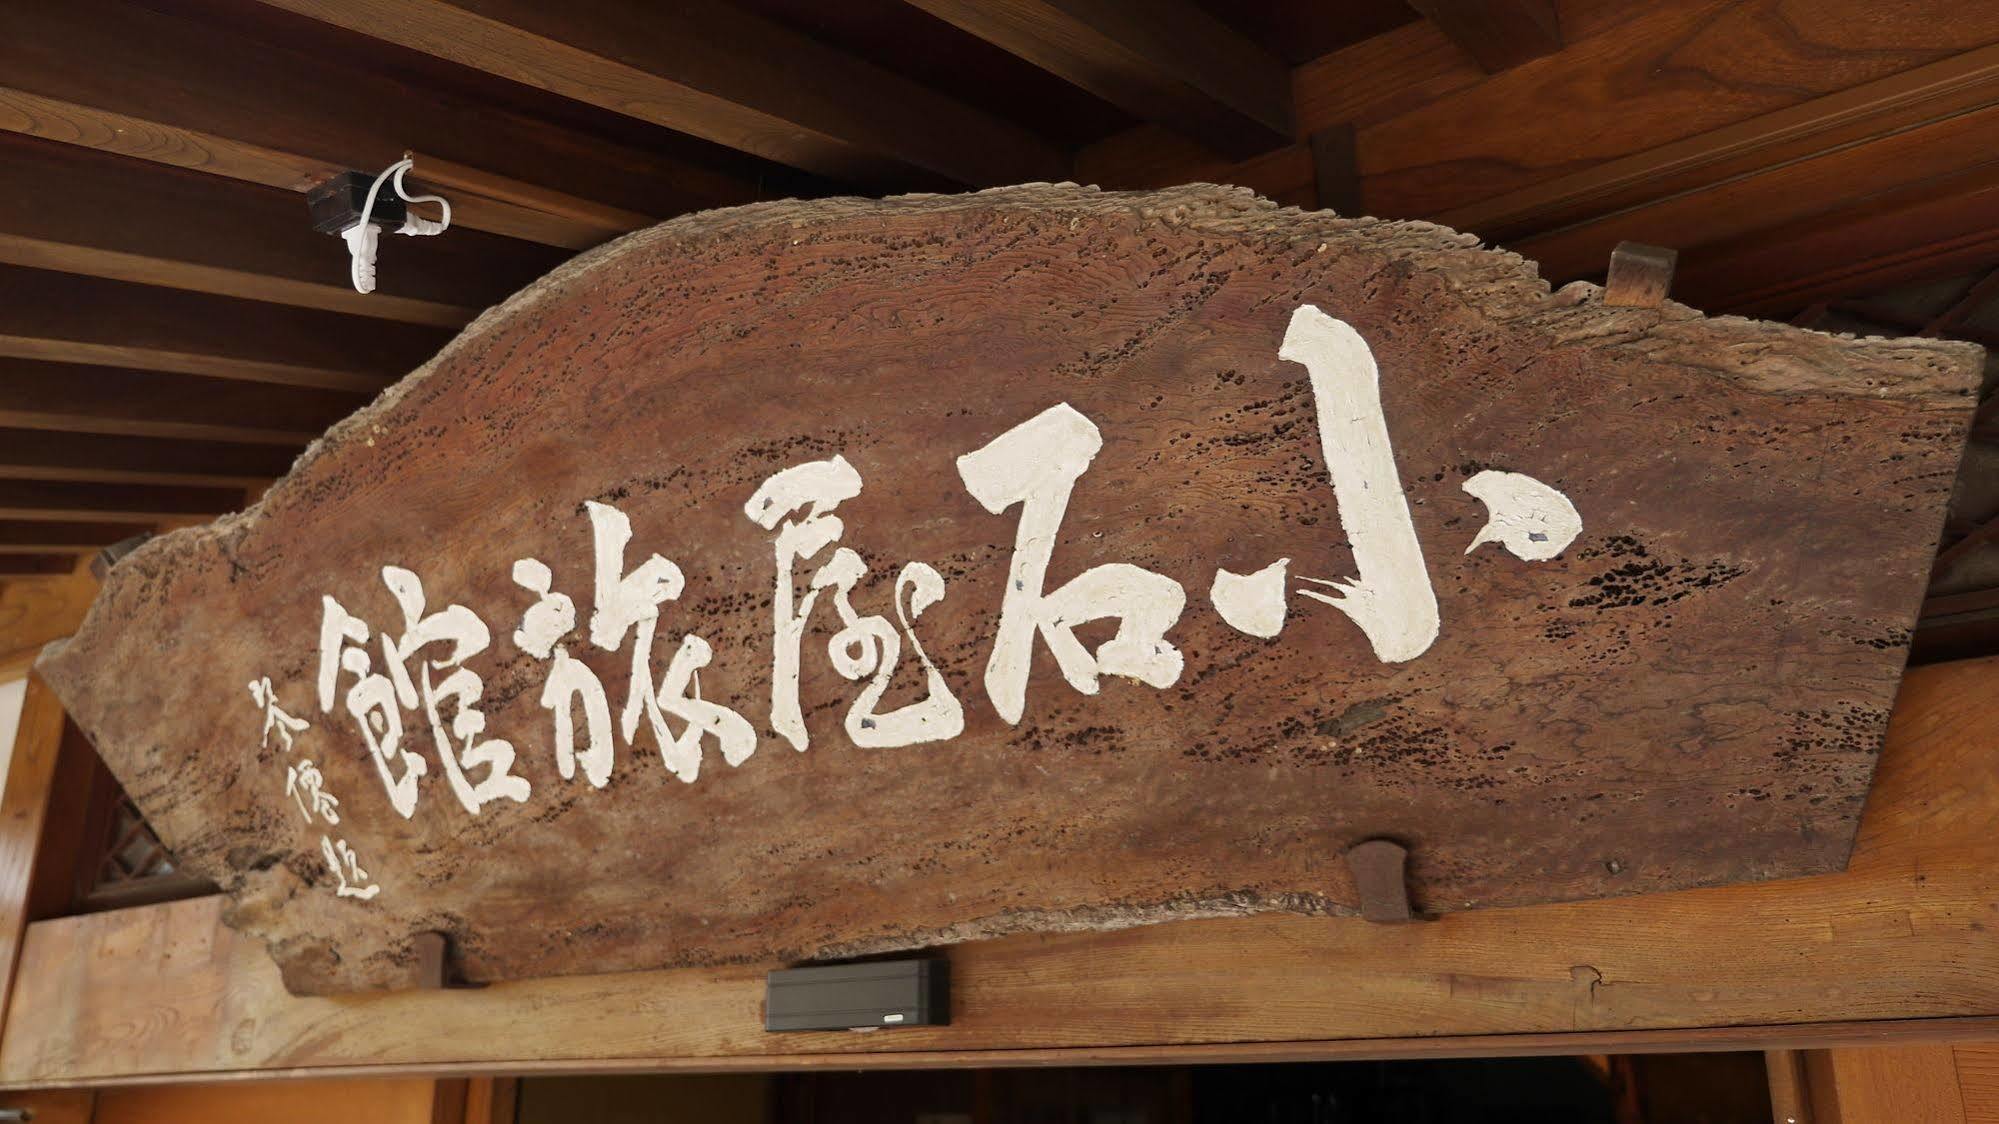 小石屋旅館